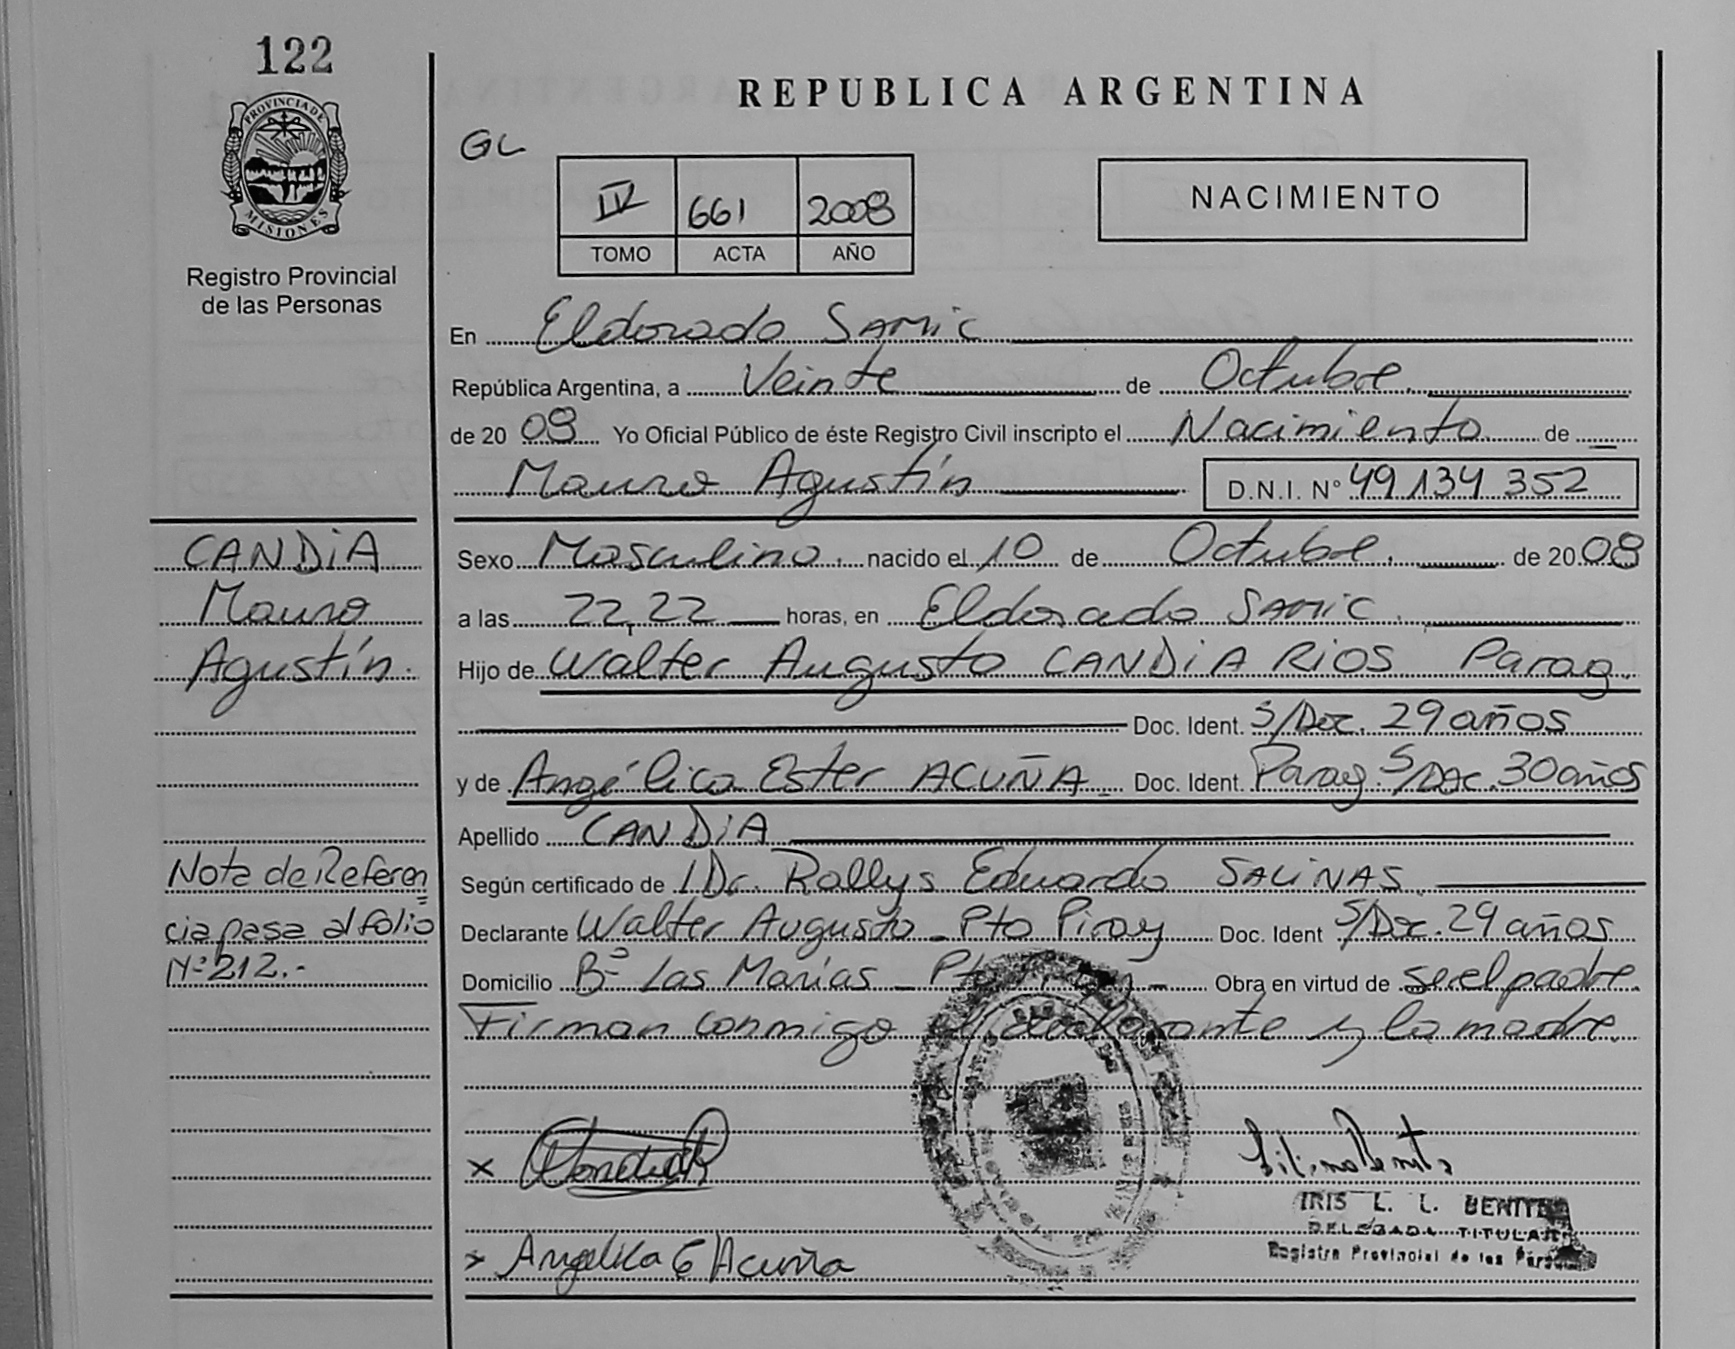 122
PROVINCIA DE
MISIONES
Registro Provincial
de las Personas
REPUBLICA ARGENTINA
GL
IV 661 2008
TOMO ACTA AÑO
NACIMIENTO
En Eldorado SAMIC
República Argentina, a Veinte de Octubre.
de 20 08 Yo Oficial Público de éste Registro Civil inscripto el Nacimiento de
Mauro Agustín D.N.I. Nº 49 134 352
CANDIA
Mauro
Agustín.
Sexo Masculino. nacido el 10 de Octubre. de 20 08
a las 22,22 horas, en Eldorado SAMIC.
Hijo de Walter Augusto CANDIA RIOS Parag.
Doc. Ident. S/Doc. 29 años
y de Angélica Ester ACUÑA Doc. Ident. Parag. S/Doc. 30 años
Apellido CANDIA
Según certificado de Dr. Rollys Eduardo SALINAS.
Declarante Walter Augusto - Pto Piray Doc. Ident S/Doc. 29 años
Domicilio Bº Las Marías - Pto Piray - Obra en virtud de ser el padre.
Firman conmigo el declarante y la madre.
Nota de Referen
cia pasa al folio
Nº 212.-
x
x Angelica E Acuña
IRIS L. L. BENITEZ
DELEGADA TITULAR
Registro Provincial de las Personas